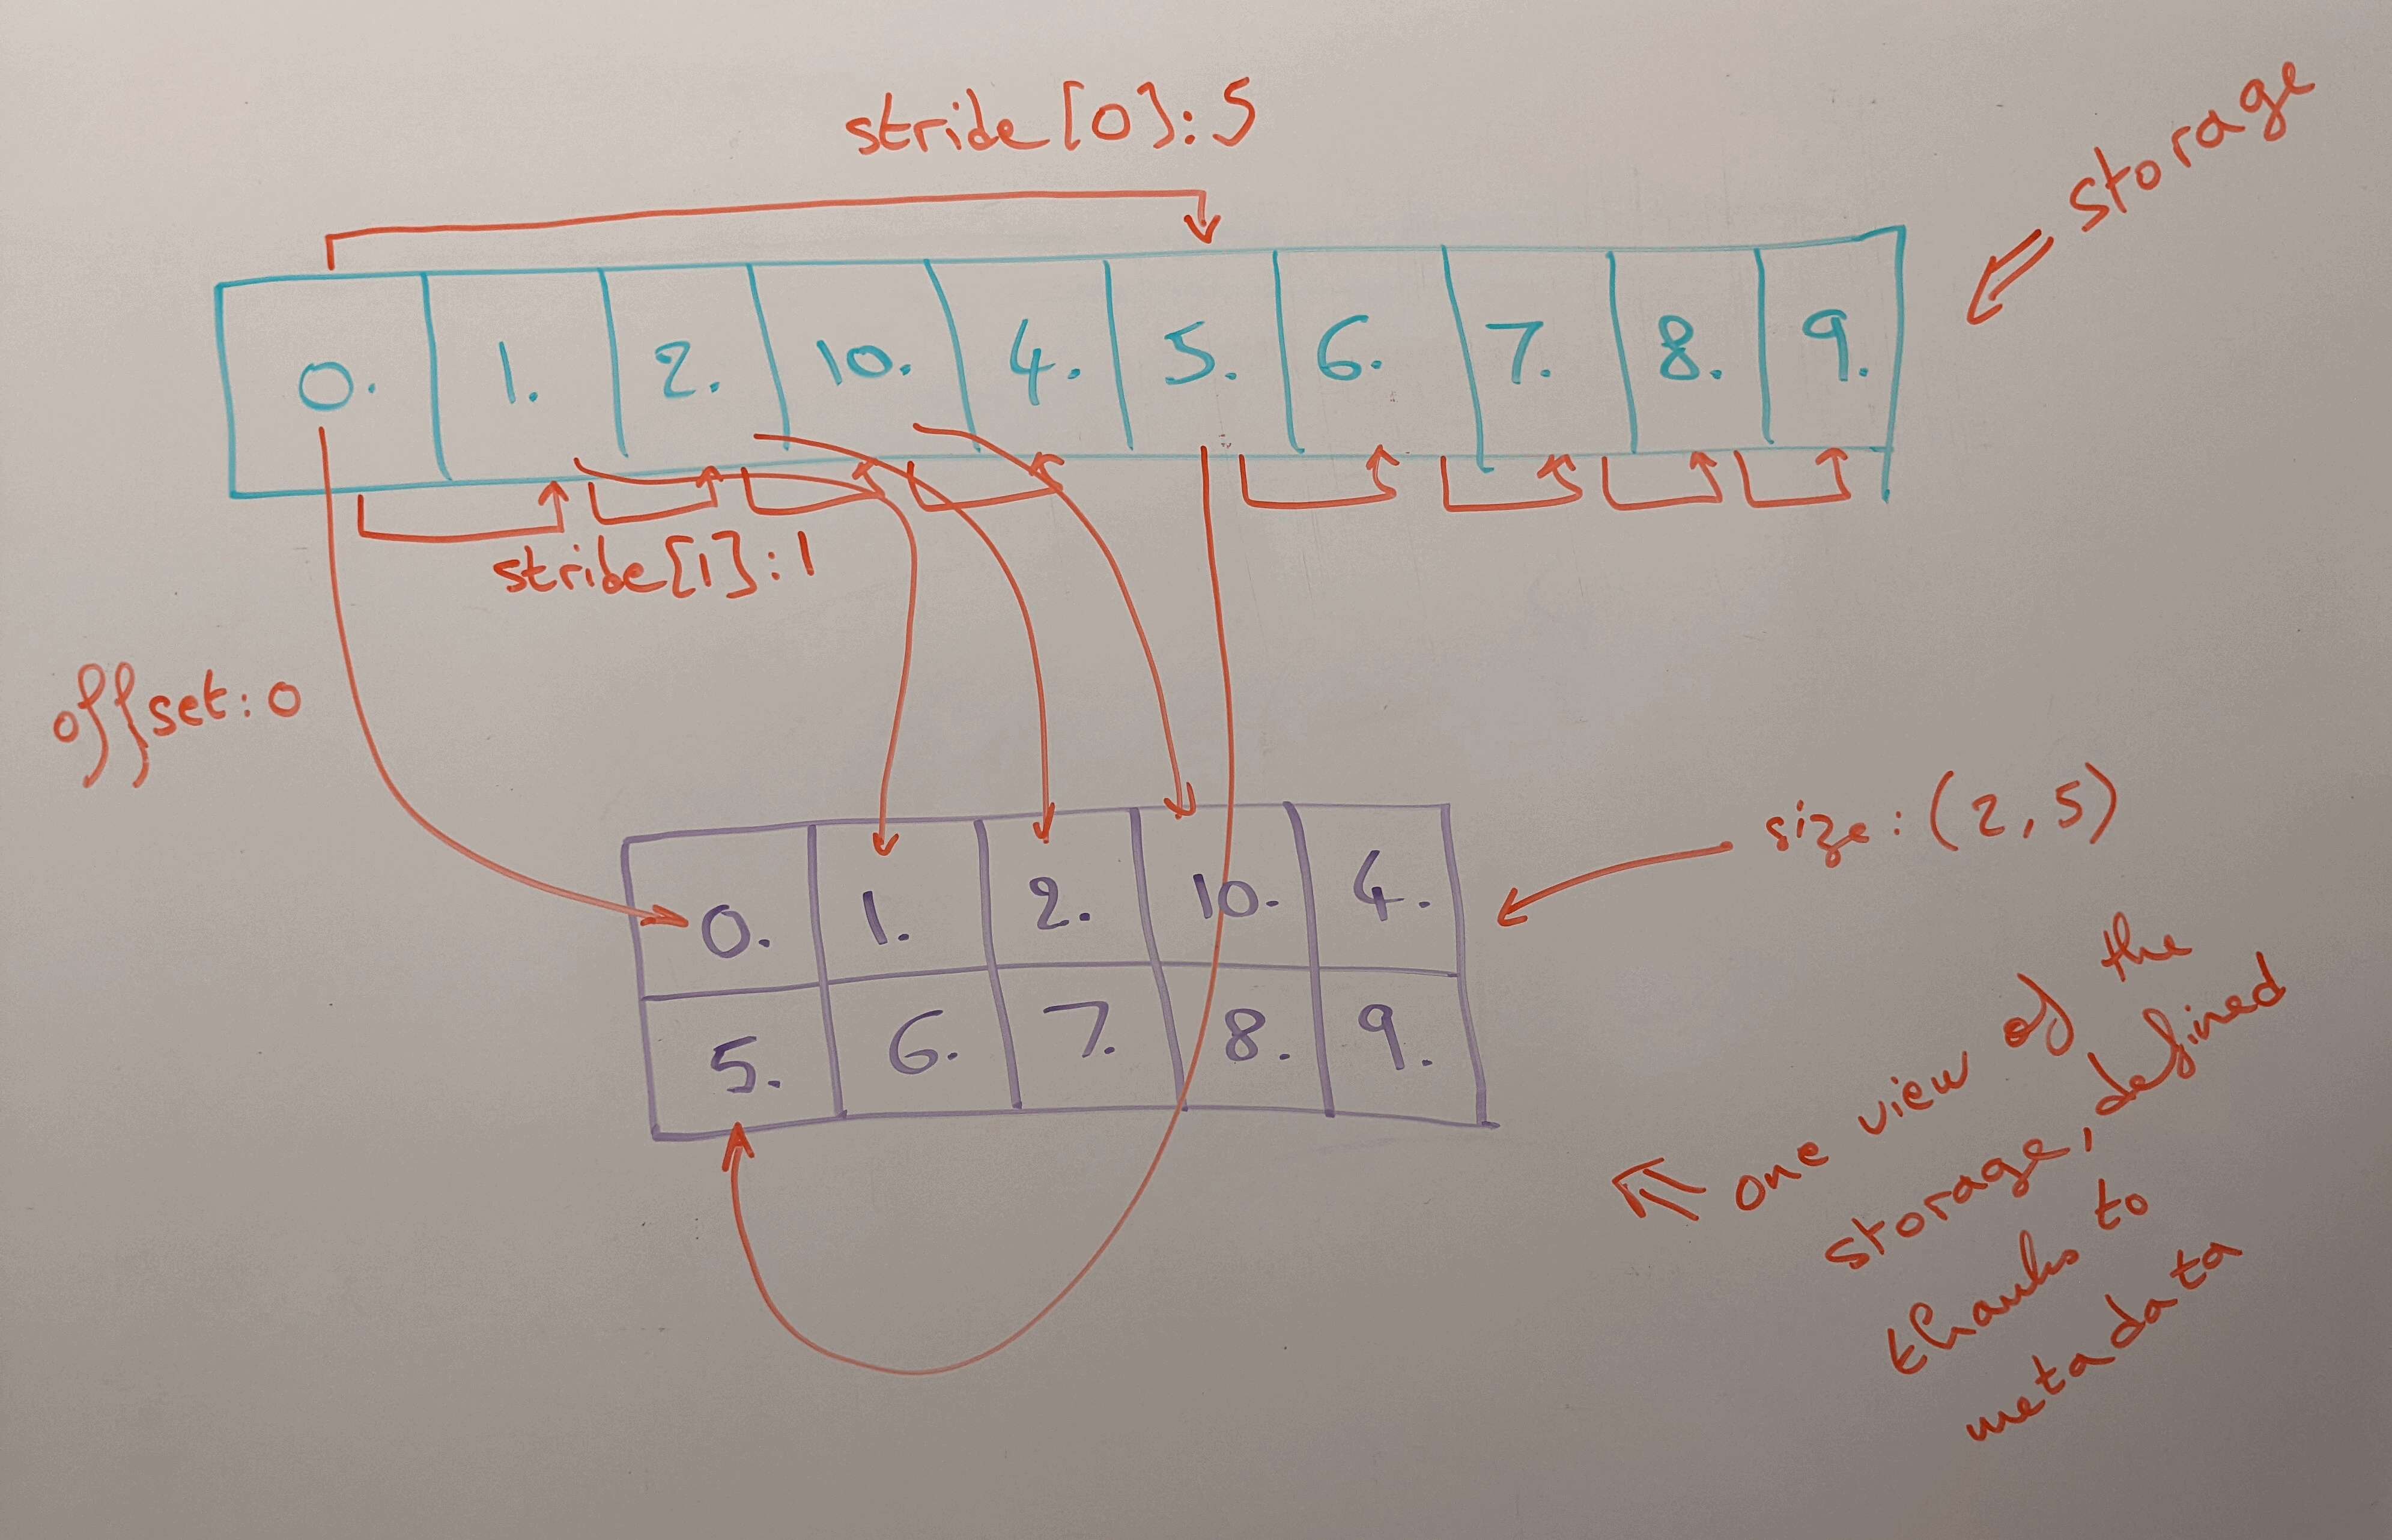 stride[0]:5
storage
0. 1. 2. 10. 4. 5. 6. 7. 8. 9.
stride[1]:1
offset:0
size:(2,5)
0. 1. 2. 10. 4.
5. 6. 7. 8. 9.
one view of the
storage, defined
thanks to
metadata